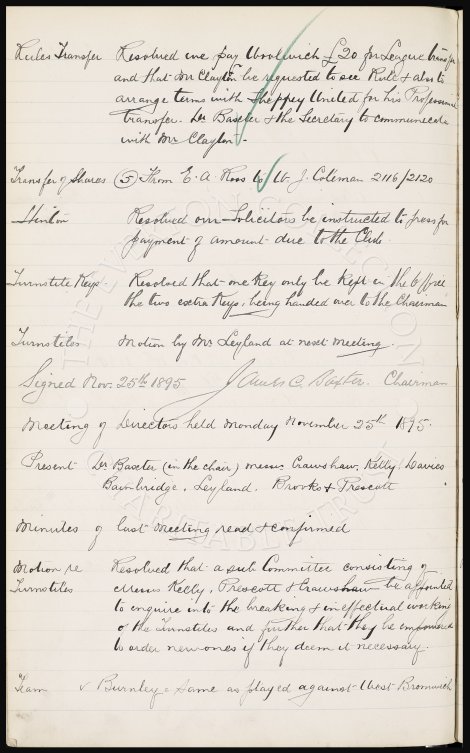 Rules Transfer Resolved we pay Woolwich £20 for League transfer
and that Mr Clayton be requested to see Rule & also to
arrange terms with Sheppey United for his Professional
transfer. Dr Baxter & the Secretary to communicate
with Mr Clayton.
Transfer of Shares (5) From E. A. Ross to W. J. Coleman 2116/2120
Hinton Resolved our Solicitors be instructed to press for
payment of amount due to the Club.
Turnstile Keys. Resolved that one Key only be kept in the Office
the two extra Keys, being handed over to the Chairman
Turnstiles Motion by Mr Leyland at next meeting.
Signed Nov. 25th 1895 James C. Baxter. Chairman
Meeting of Directors held Monday November 25th 1895.
Present Dr Baxter (in the chair) messrs Crawshaw, Kelly, Davies
Bainbridge, Leyland, Brooks & Prescott
Minutes of last meeting read & confirmed
Motion re Resolved that a sub Committee consisting of
Turnstiles Messrs Kelly, Prescott & Crawshaw be appointed
to enquire into the breaking & ineffectual working
of the Turnstiles and further that they be empowered
to order new ones if they deem it necessary.
Team v Burnley = same as played against West Bromwich